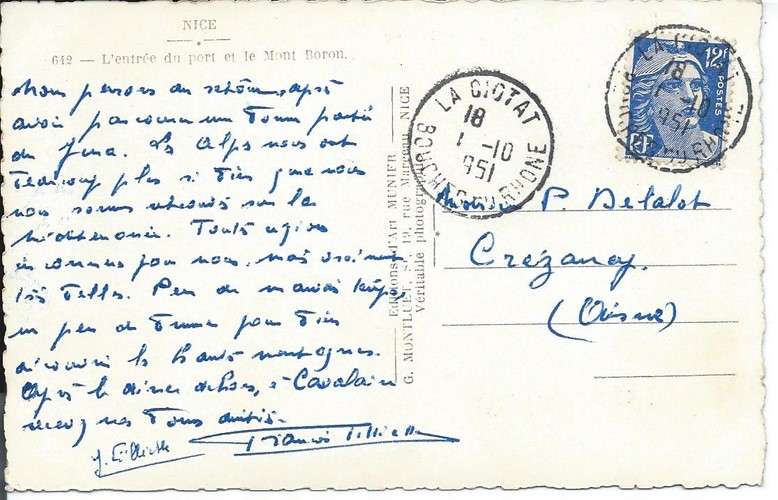 NICE
642 — L'entrée du port et le Mont Boron.
Nous pensons au retour après
avoir parcouru une bonne partie
du Jura. Les Alpes nous ont
beaucoup plu si bien que nous
nous sommes sur la
Méditerranée. Toutes régions
inconnues pour nous, mais vraiment
très belles. Peu de mauvais temps,
un peu de brume pour bien
découvrir les hautes montagnes.
Après le dîner dehors, à Cavalaire
recevez nos bonnes amitiés.
Francis Tilliette
J. Tilliette
Editions d'Art MUNIER
G. MONTLUET, Sr, 19, rue Marceau, NICE
Véritable photographie
LA CIOTAT
18
1 -10
951
BOUCHES-DU-RHONE
12F
POSTES
RF
LA CIOTAT
18
1 -10
951
BOUCHES-DU-RHONE
Monsieur P. Delalot
Crézancy
(Aisne)